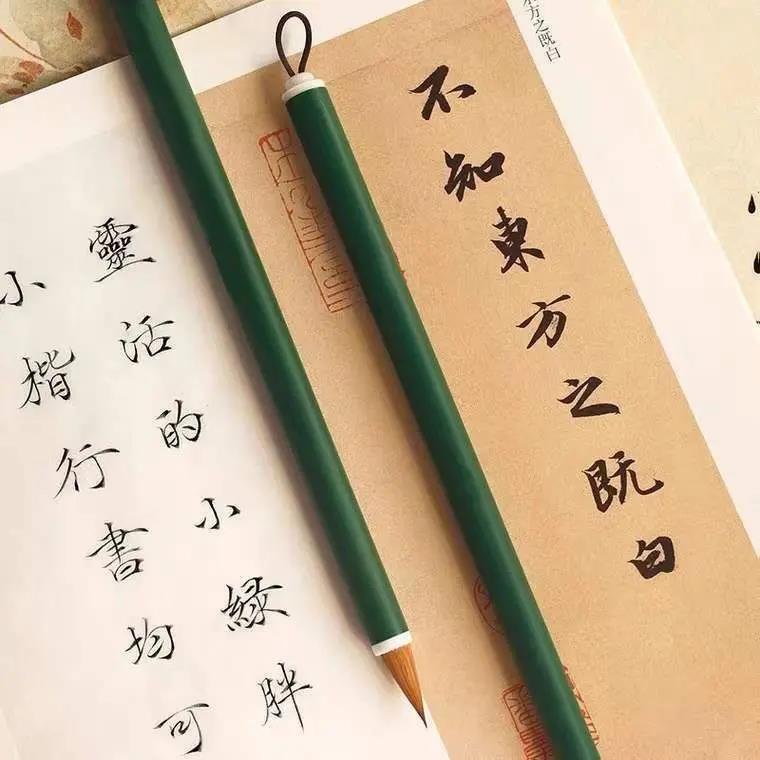 东方之既白
不知東方之既白
靈活的小緑胖
小楷行書均可